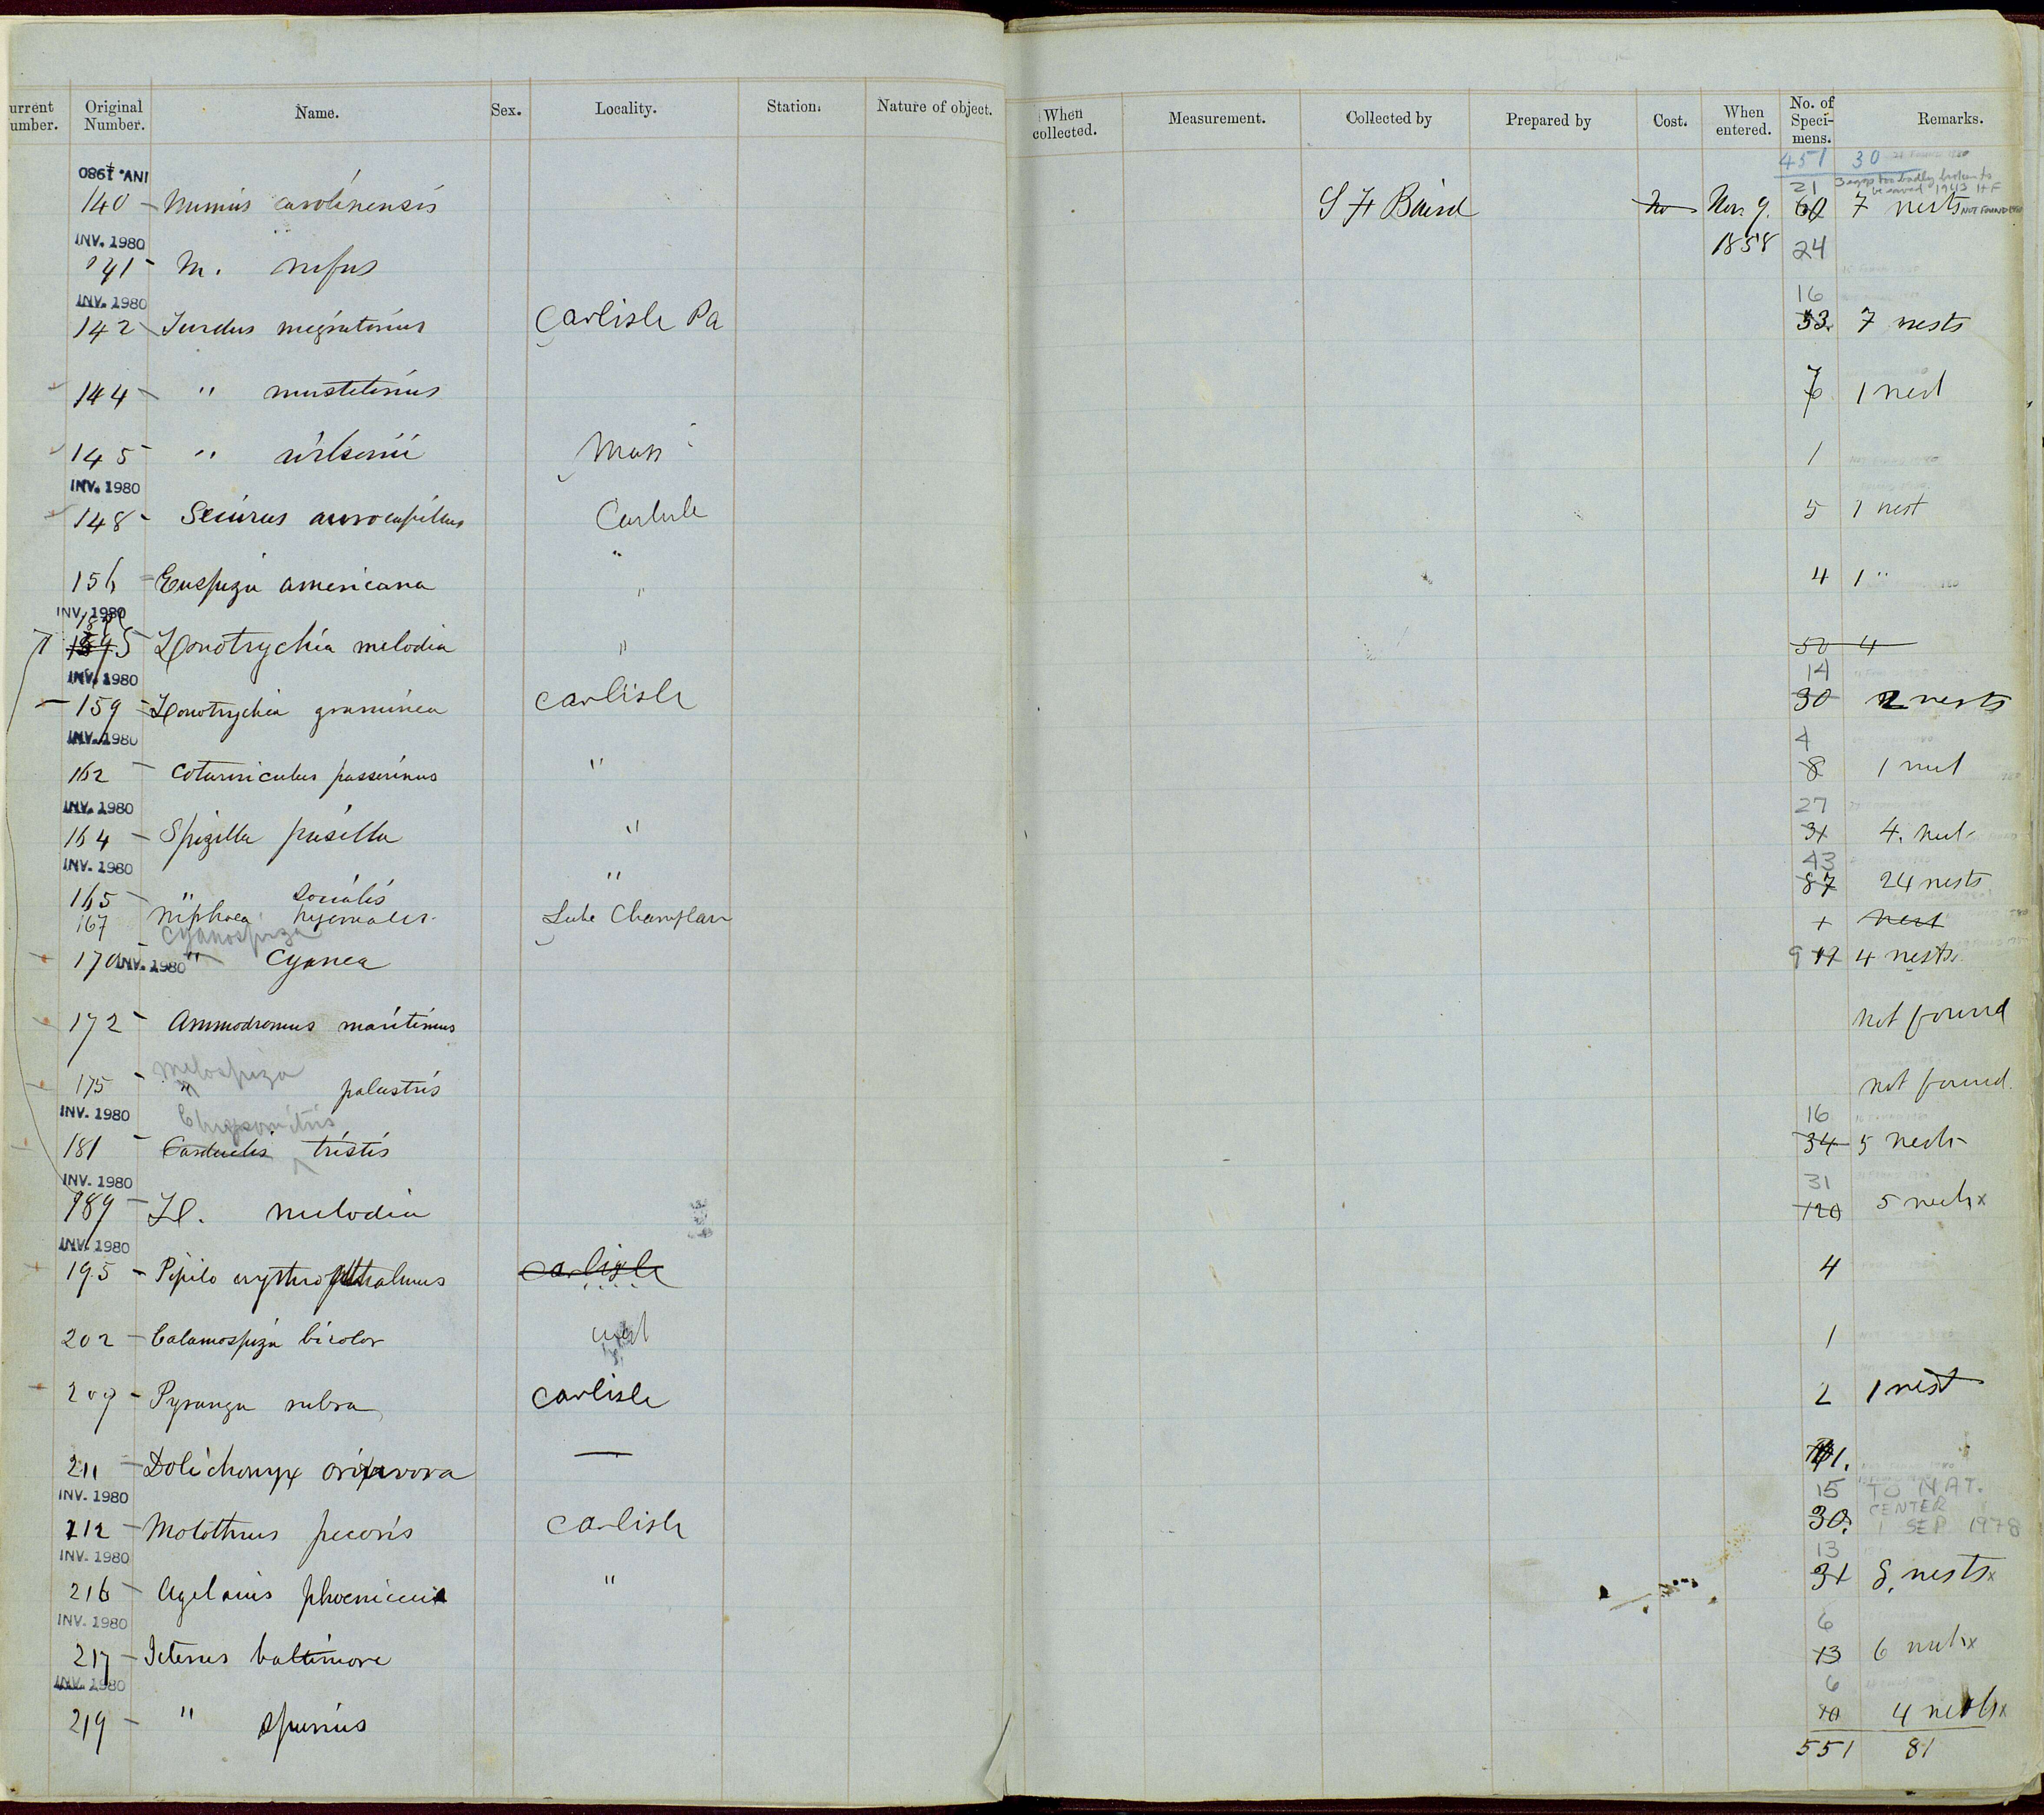 urrent umber. Original Number. Name. Sex. Locality. Station. Nature of object. When collected. Measurement. Collected by Prepared by Cost. When entered. No. of Speci- mens. Remarks.
451 30
INV. 1980
21 3 eggs too badly broken to be saved 1943 H F
140 - Mimus carolinensis S F Baird no Nov. 9. 60 7 nests NOT FOUND 1980
INV. 1980
141 - M. rufus 1858 24
INV. 1980
16
142 Turdus migratorius Carlisle Pa 53. 7 nests
7
144 - " mustelinus 6 1 nest
145 - " wilsonii Mass 1
INV. 1980
148 - Seiurus aurocapillus Carlisle 5 1 nest
"
156 - Euspiza americana " 4 1 "
INV. 1980
189
Zonotrychia melodia " 50 4
INV. 1980
14
159 - Zonotrychia graminea Carlisle 30 2 nests
INV. 1980
4
162 - Coturniculus passerinus " 8 1 nest
INV. 1980
27
164 - Spizella pusilla " 31 4. nest
INV. 1980
43
165 - " socialis " 87 24 nests
167 Niphaea hyemalis Lake Champlain + nest
Cyanospiza
170 INV. 1980 " Cyanea 9 11 4 nests
172 - Ammodromus maritimus not found
Melospiza
175 - " palustris not found.
INV. 1980
Chrysomitris
16
181 - Carduelis tristis 34 5 nests
INV. 1980
31
189 - Z. melodia 120 5 nests x
INV. 1980
195 - Pipilo erythrophthalmus Carlisle 4
202 - Calamospiza bicolor 1
209 - Pyranga rubra Carlisle 2 1 nest
211 - Dolichonyx orizivora — 1.
INV. 1980
15 TO NAT. CENTER 1 SEP 1978
212 - Molothrus pecoris Carlisle 30.
INV. 1980
13
216 - Agelaius phoeniceus " 31 8. nests x
INV. 1980
6
217 - Icterus baltimore 13 6 nests x
INV. 1980
6
219 - " spurius 10 4 nests x
551 81